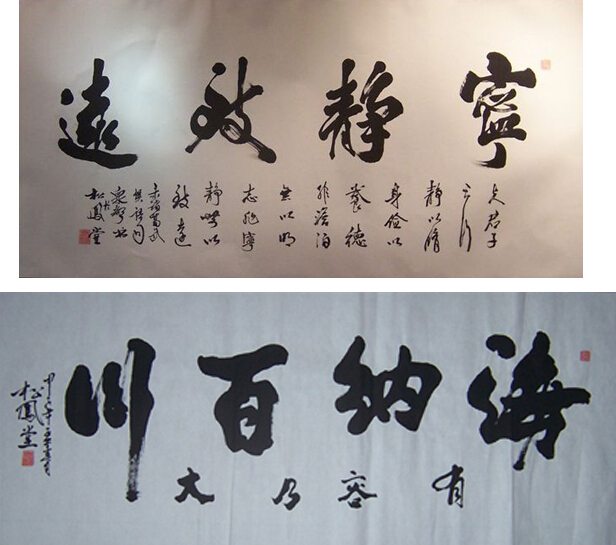 寧靜致遠
夫君子
之行
靜以脩
身儉以
養德
非澹泊
無以明
志非寧
靜無以
致遠
諸葛武
松鳳堂
海納百川
有容乃大
松鳳堂